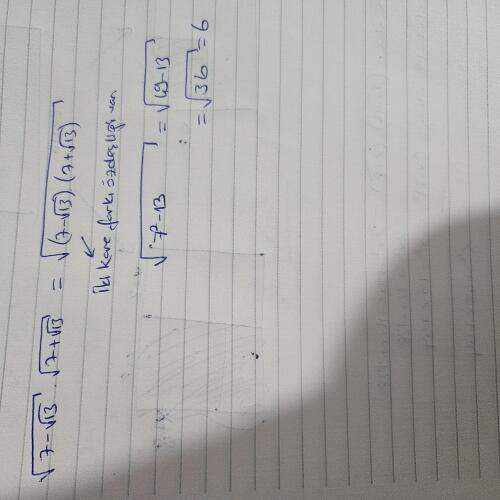 √(7-√13) · √(7+√13) = √((7-√13).(7+√13))
İki kare farkı özdeşliği var
√(7²-13) = √(49-13)
= √36 = 6